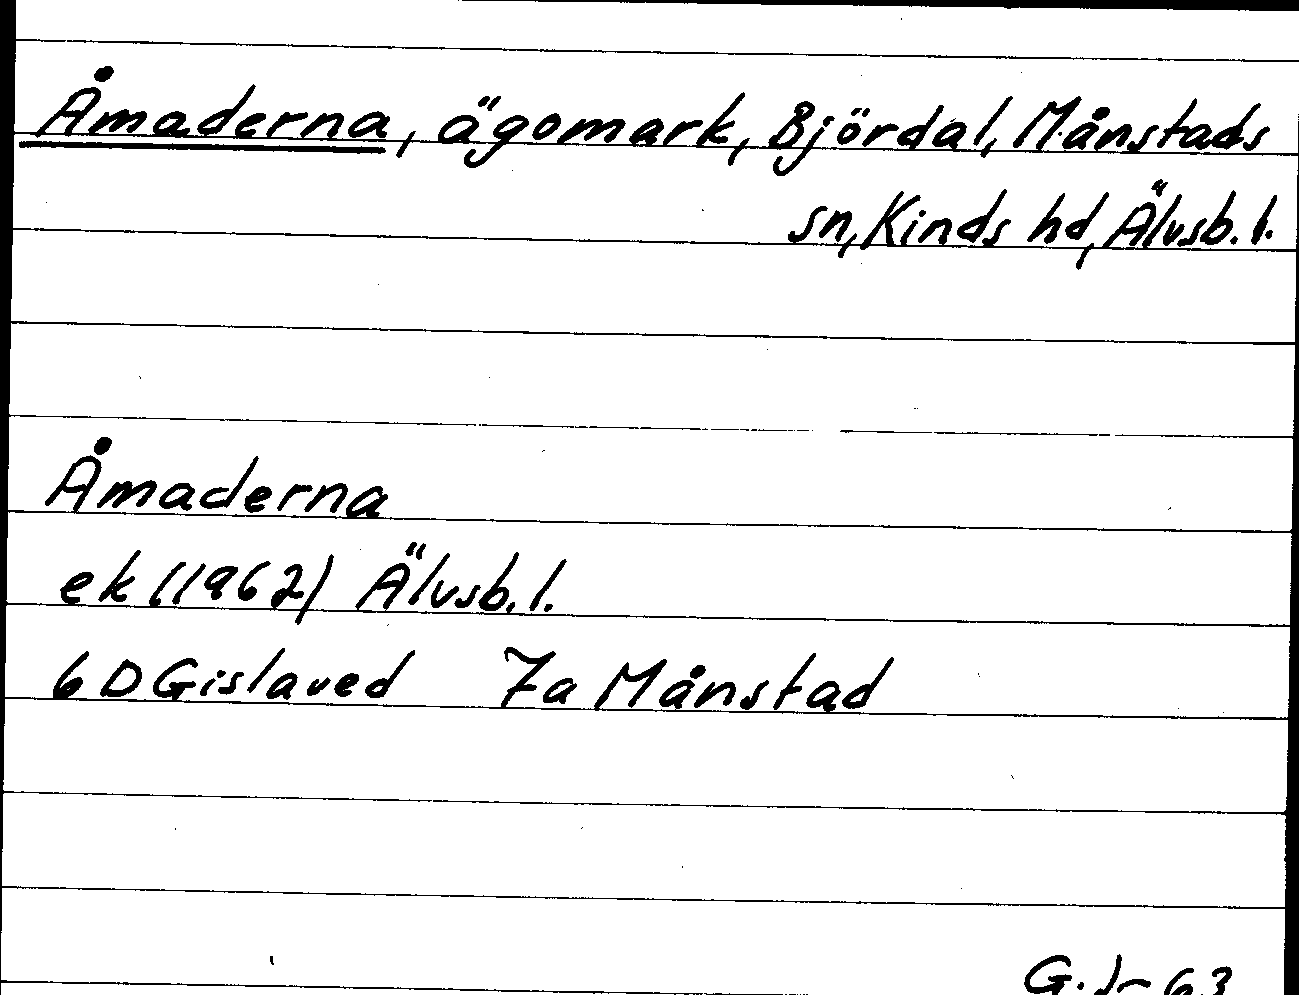 Åmaderna, ägomark, Björdal, Månstads
sn, Kinds hd, Älvsb. l.
Åmaderna
ek (1962) Älvsb. l.
6 D Gislaved 7a Månstad
G. J- 63